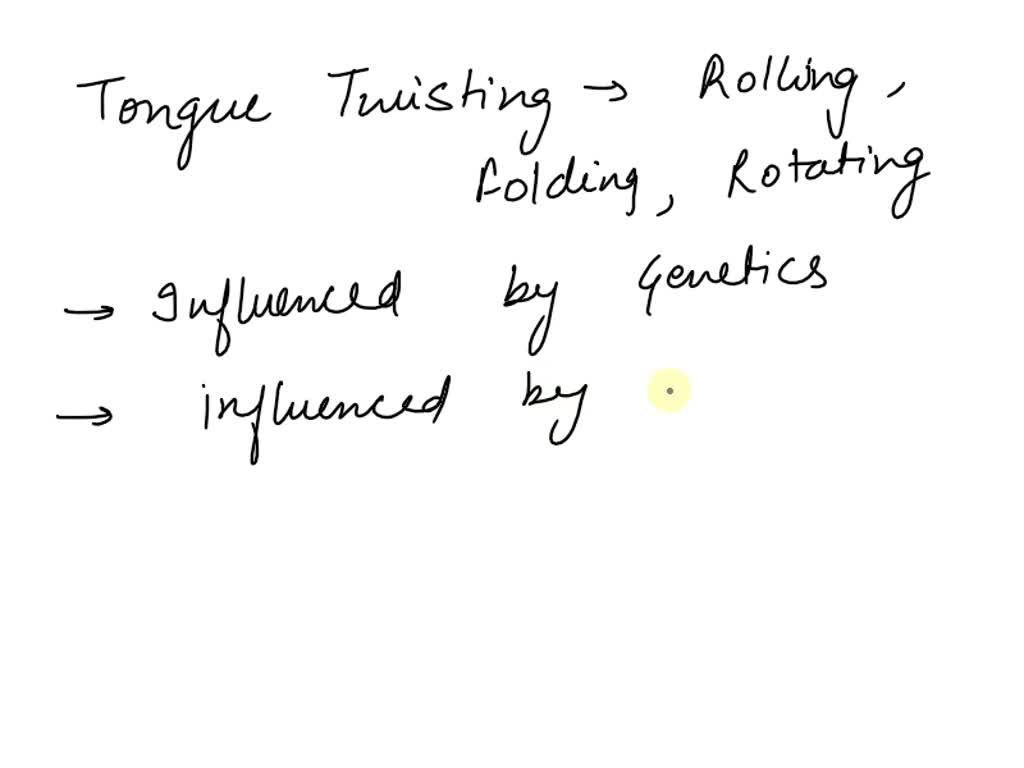 Tongue Twisting → Rolling,
Folding, Rotating
→ Influenced by Genetics
→ influenced by